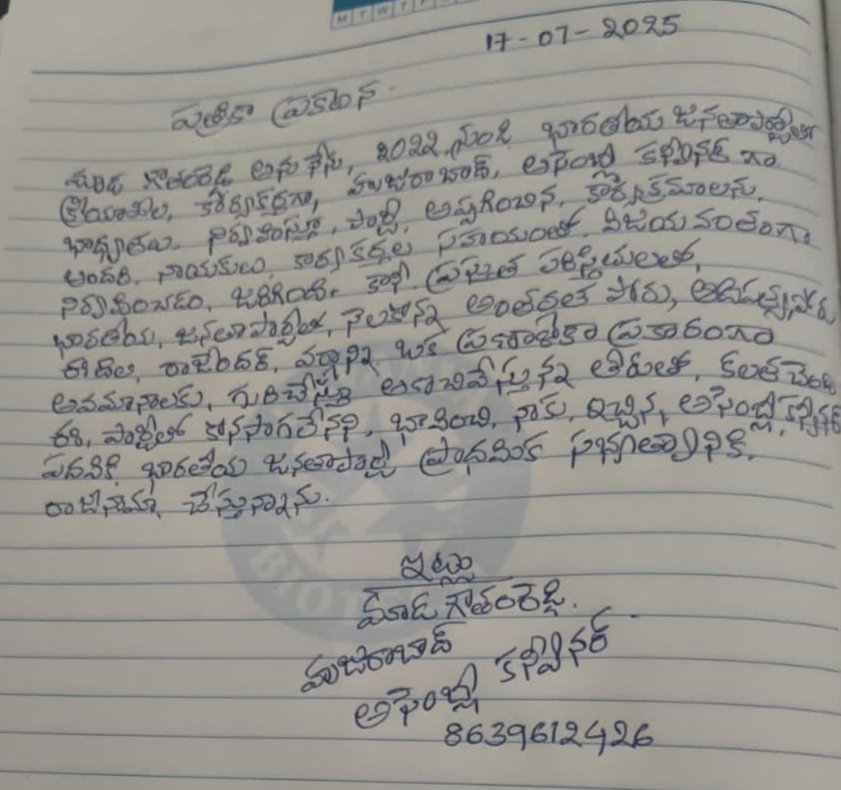 M T W T F
17-07-2025
పత్రికా ప్రకటన.
మాడ గౌతంరెడ్డి అను నేను, 2022 నుండి భారతీయ జనతాపార్టీలో
క్రియాశీల, కార్యకర్తగా, హుజురాబాద్, అసెంబ్లీ కన్వీనర్ గా
బాధ్యతలు నిర్వహిస్తూ, పార్టీ అప్పగించిన, కార్యక్రమాలను,
అందరి, నాయకులు, కార్యకర్తల సహాయంతో, విజయవంతంగా
నిర్వహించడం, జరిగింది. కానీ ప్రస్తుత పరిస్థితులలో,
భారతీయ, జనతాపార్టీలో, నెలకొన్న అంతర్గత పోరు, ఆధిపత్య పోరు
ఈటల, రాజేందర్, వర్గాన్ని ఒక ప్రణాళికా ప్రకారంగా
అవమానాలకు, గురిచేస్తూ అణచివేస్తున్న తీరుతో, కలత చెంది
ఈ, పార్టీలో కొనసాగలేనని, భావించి, నాకు, ఇచ్చిన, అసెంబ్లీ కన్వీనర్
పదవికి, భారతీయ జనతాపార్టీ ప్రాథమిక సభ్యత్వానికి,
రాజీనామా, చేస్తున్నాను.
ఇట్లు
మాడ గౌతంరెడ్డి.
హుజురాబాద్
అసెంబ్లీ కన్వీనర్
8639612426